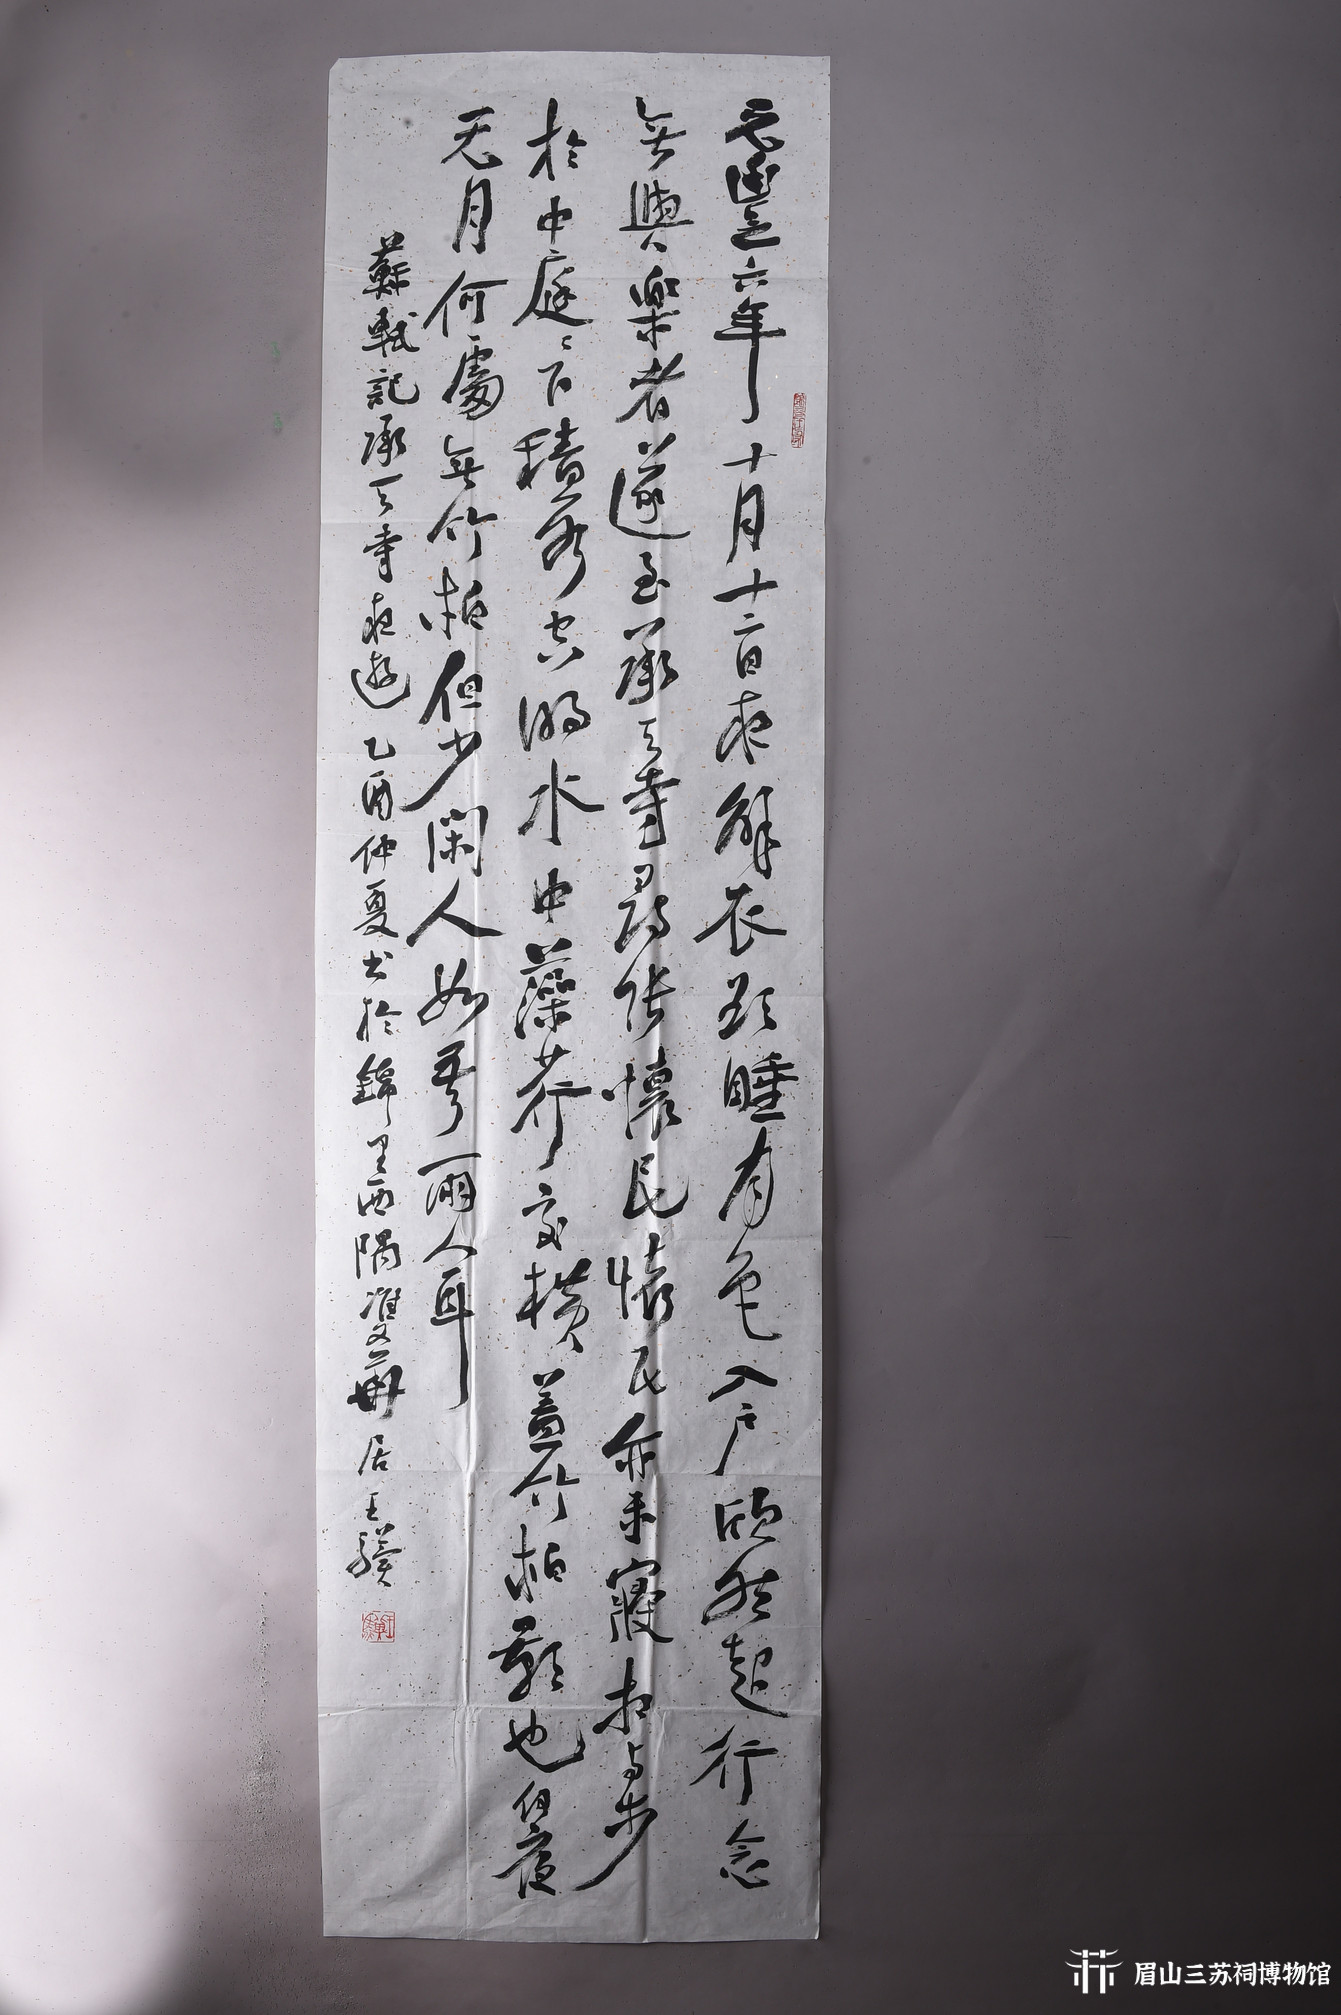 元豐六年十月十二日夜解衣欲睡有色入戶欣然起行念
無與樂者遂至承天寺尋張懷民懷民亦未寢相與步
於中庭庭下積水空明水中藻荇交橫蓋竹柏影也何夜
无月何處無竹柏但少閑人如吾兩人耳
蘇軾記承天寺夜遊 乙酉仲夏书於錦里西隅雙華居王驥
眉山三苏祠博物馆